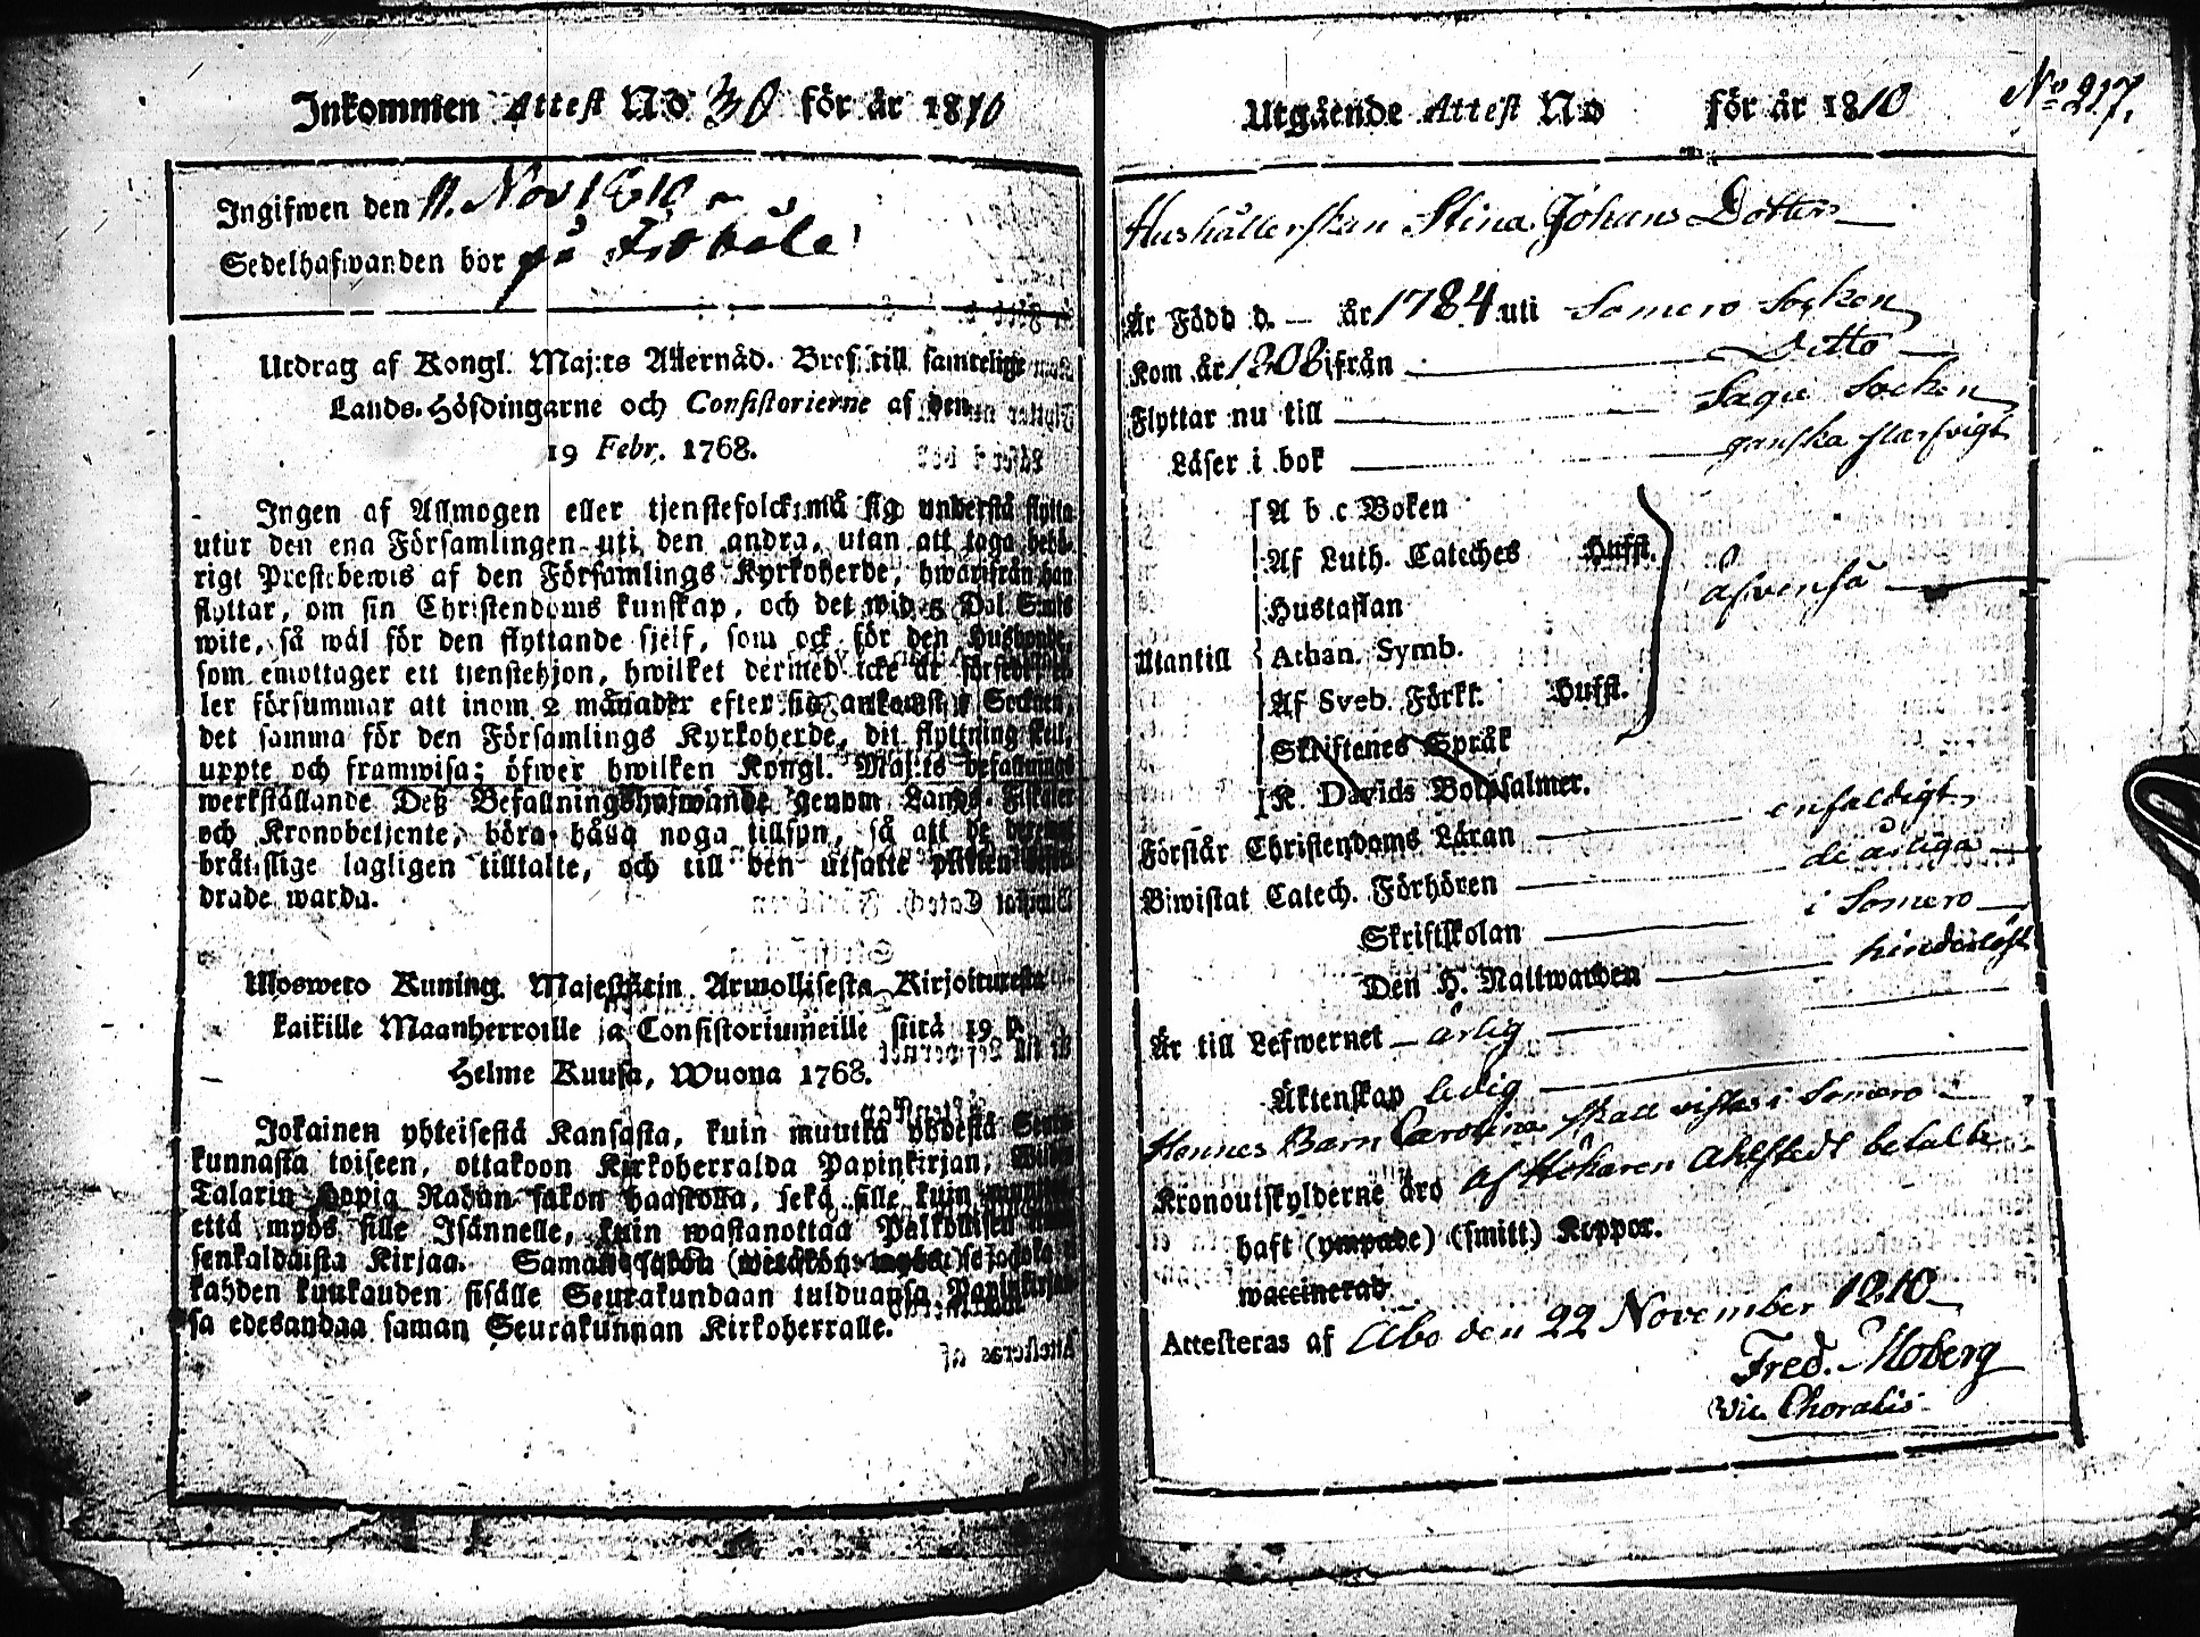 Inkommen Attest No 30 för år 1810
Ingifwen den 11. Nov 1810
Sedelhafwanden bor på
Utdrag af Kongl. Maj:ts Allernåd. Bref till samtelige
Lands-Höfdingarne och Consistorierne af den
19 Febr. 1768.
Ingen af Allmogen eller tjenstefolck må sig understå flytta
utur den ena Församlingen uti den andra, utan att taga behö-
rigt Prestebewis af den Församlings Kyrkoherde, hwarifrån han
flyttar, om sin Christendoms kunskap, och det wid 5 Dal. S:mts
wite, så wäl för den flyttande sjelf, som ock för den Husbonde,
som emottager ett tjenstehjon, hwilket dermed icke är försedt el-
ler försummar att inom 2 månader efter sin ankomst i Socknen,
det samma för den Församlings Kyrkoherde, dit flyttning skett,
uppte och framwisa; öfwer hwilken Kongl. Maj:ts befallnings
werkställande Deß Befallningshafwande genom Lands-Fiskaler
och Kronobetjente, böra hålla noga tillsyn, så att de deremot
bråtslige lagligen tilltalte, och till den utsatte plikten
drade warda.
Ulosweto Kuning. Majestätin Armollisesta Kirjoituresta
kaikille Maanherroille ja Consistoriumeille siitä 19 p.
Helme Kuusa, Wuona 1768.
Jokainen yhteisestä Kansasta, kuin muutta yhdestä Seura-
kunnasta toiseen, ottakoon Kirkoherralda Papinkirjan, Wiiden
Talarin Hopia Rahan sakon haastolla, sekä sille kuin muuttaa
että myös sille Isännelle, kuin wastanottaa Palkollisen
senkaldaista Kirjaa. Saman sakon se joka ei
kahden kuukauden sisälle Seurakundaan tulduansa Papinkirjan-
sa edesandaa saman Seurakunnan Kirkoherralle.
Utgående Attest No för år 1810 No 217.
Hushållerskan Stina Johans Dotter
Är Född d. — år 1784 uti Somero Socken
Kom år 1808 ifrån Ditto
Flyttar nu till Sagu Socken
Läser i bok ganska slarfvigt
A b c Boken
Af Luth. Cateches Hufst.
Hustaflan
äfvenså
Utantill Athan. Symb.
Af Sveb. Förkl. Hufst.
Skriftenes Språk
K. Davids Botpsalmer.
Förstår Christendoms Läran enfaldigt
Biwistat Catech. Förhören de årliga
Skriftskolan i Somero
Den H. Nattwarden hinderlöst
Är till Lefwernet ärlig
Äktenskap ledig
Hennes Barn Carolina skall vistas i Somero
Kronoutskylderne äro af Hökaren Ahlstedt betalte
haft (ympade) (smitt) Koppor.
waccinerad
Attesteras af Åbo den 22 November 1810
Fred. Moberg
Vic. Choralis